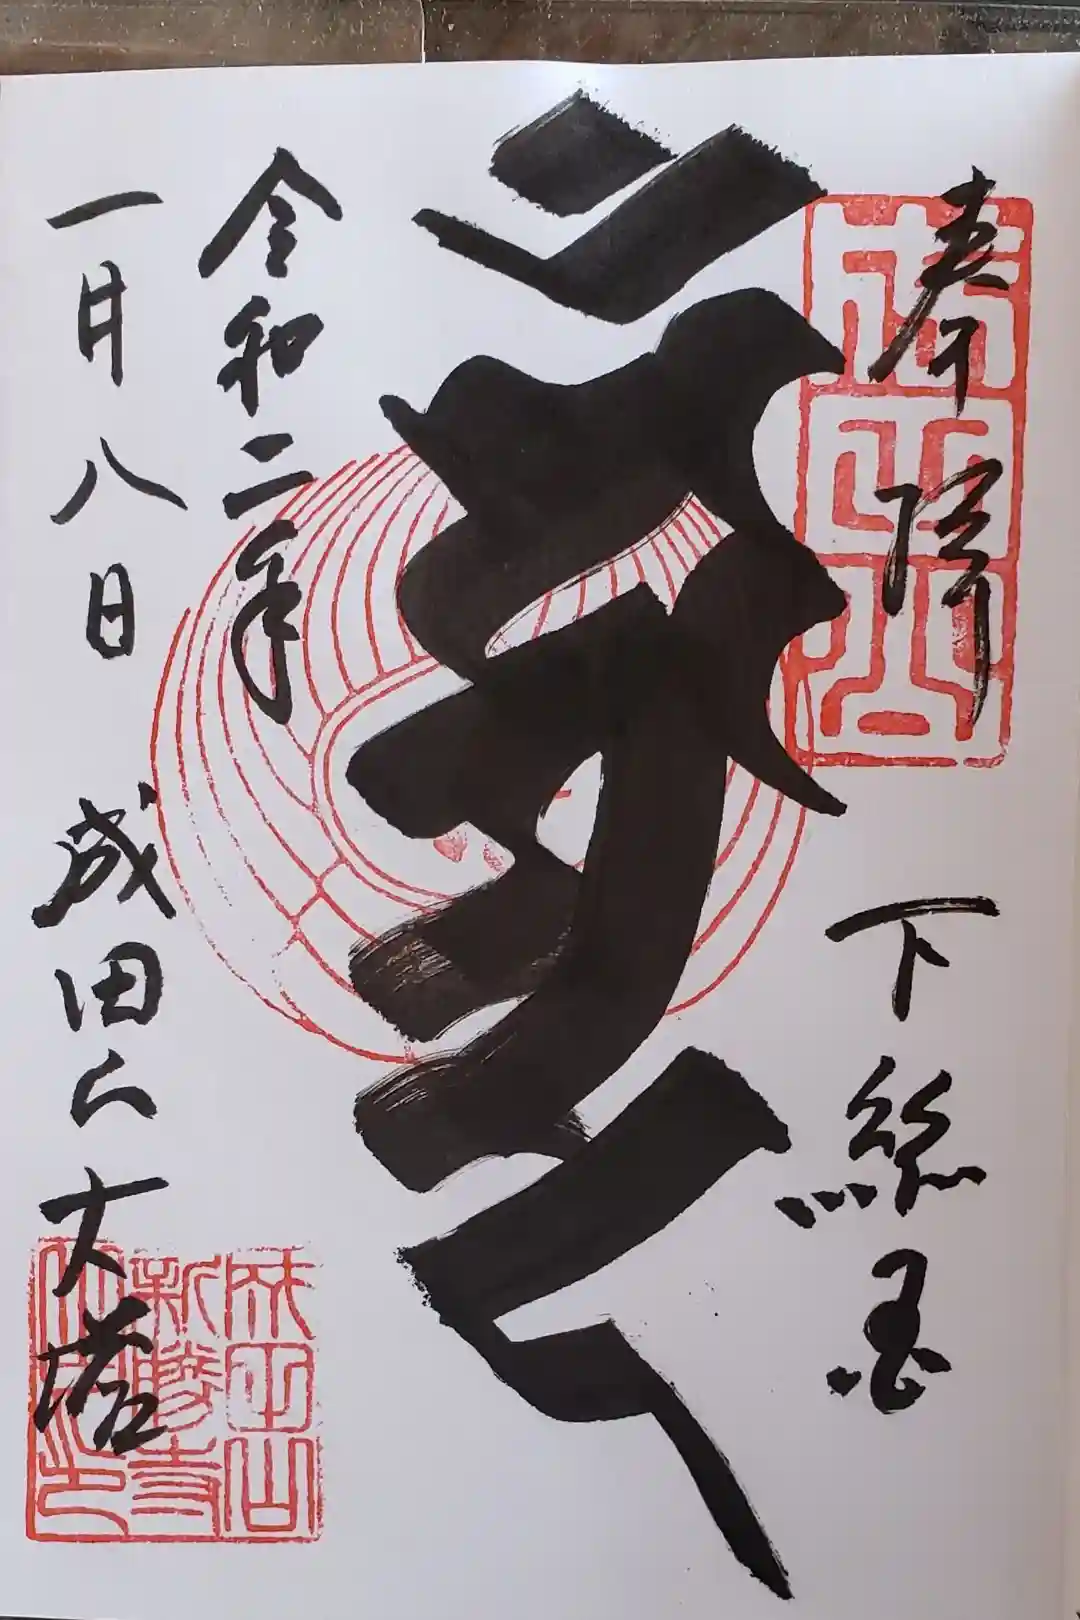 奉拝 下総国
成田山
令和二年
一月八日 成田山大塔
成田山
新勝寺